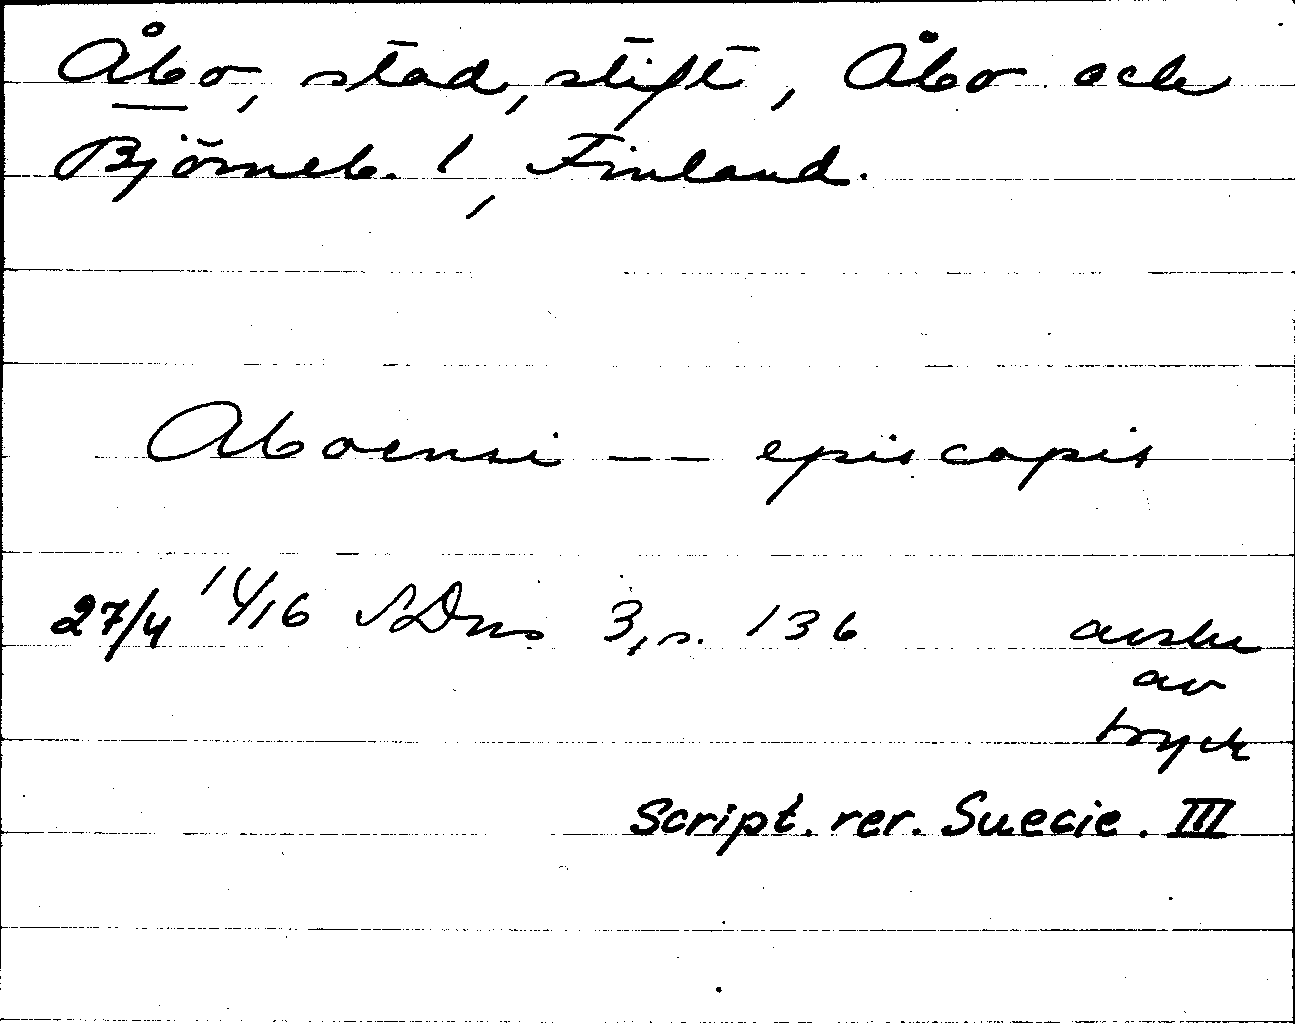 Åbo, stad, stift, Åbo och
Björneb. l, Finland.
Aboensi — — episcopis
27/4 1416 SDns 3, s. 136 avskr
av
tryck
Script. rer. Suecie. III